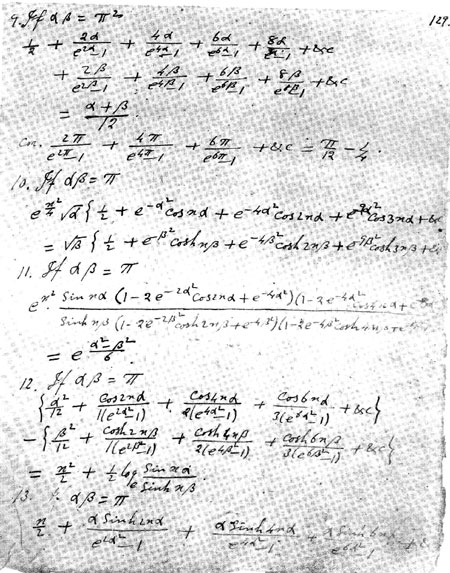 129.
9. If αβ = π²
1/2 + 2α/(e^{2α}-1) + 4α/(e^{4α}-1) + 6α/(e^{6α}-1) + 8α/(e^{8α}-1) + &c
+ 2β/(e^{2β}-1) + 4β/(e^{4β}-1) + 6β/(e^{6β}-1) + 8β/(e^{8β}-1) + &c
= (α+β)/12.
Cor. 2π/(e^{2π}-1) + 4π/(e^{4π}-1) + 6π/(e^{6π}-1) + &c = π/12 - 1/4.
10. If αβ = π
e^{n²/4} √α {1/2 + e^{-α²} cos nα + e^{-4α²} cos 2nα + e^{-9α²} cos 3nα + &c
= √β {1/2 + e^{-β²} cosh nβ + e^{-4β²} cosh 2nβ + e^{-9β²} cosh 3nβ + &c
11. If αβ = π
e^{n²} · Sin nα (1-2e^{-2α²} cos 2nα + e^{-4α²})(1-2e^{-4α²} cos 4nα +
Sinh nβ (1-2e^{-2β²} cosh 2nβ + e^{-4β²})(1-2e^{-4β²} cosh 4nβ +
= e^{(α²-β²)/6}.
12. If αβ = π
{α²/12 + Cos 2nα/(1(e^{2α²}-1)) + Cos 4nα/(2(e^{4α²}-1)) + Cos 6nα/(3(e^{6α²}-1)) + &c}
- {β²/12 + Cosh 2nβ/(1(e^{2β²}-1)) + Cosh 4nβ/(2(e^{4β²}-1)) + cosh 6nβ/(3(e^{6β²}-1)) + &c}
= n²/2 + 1/2 log_e Sin nα/Sinh nβ.
13. If αβ = π
n/2 + α Sinh 2nα/(e^{2α²}-1) + α Sinh 4nα/(e^{4α²}-1) + α Sinh 6nα/(e^{6α²}-1)